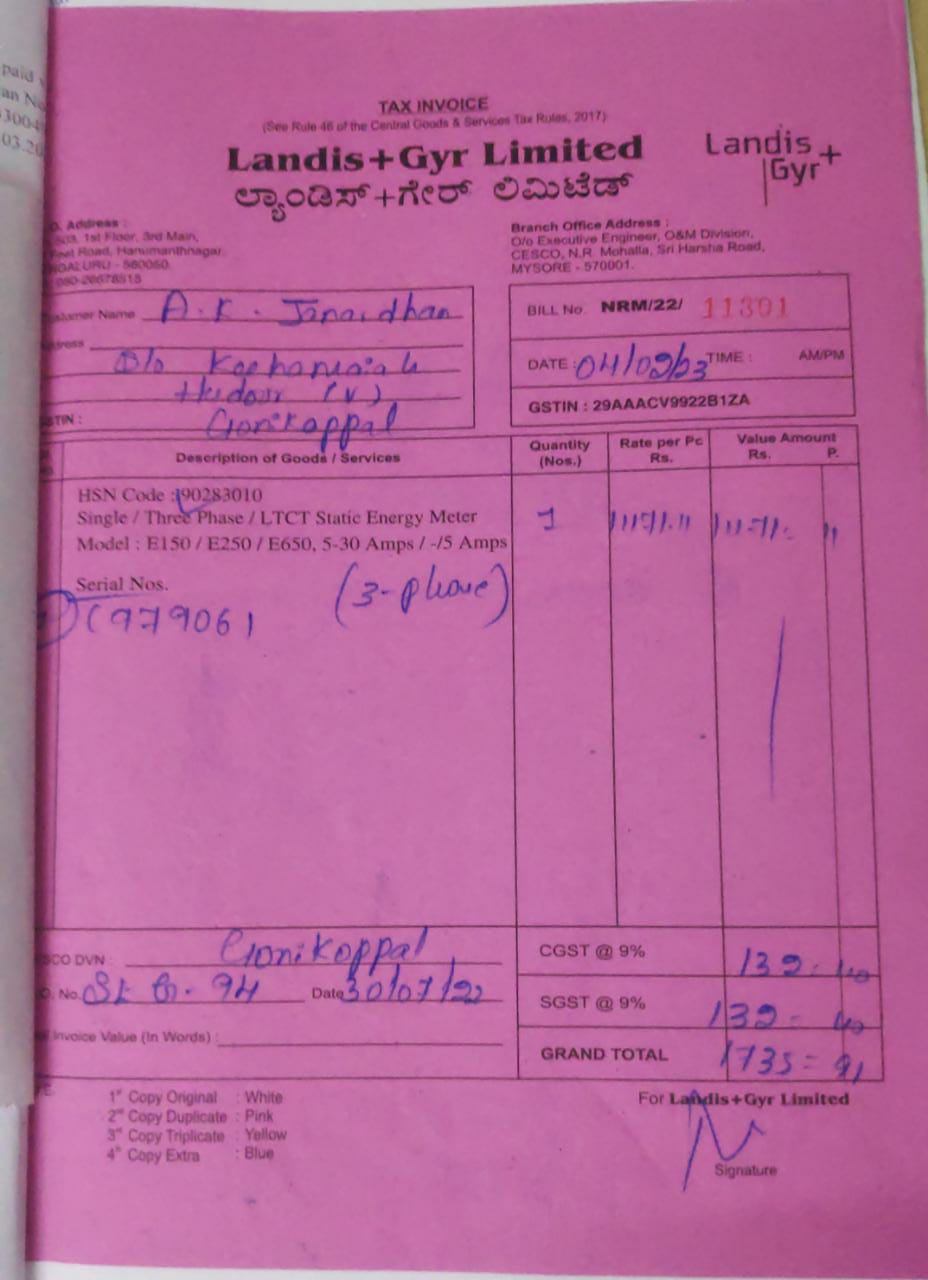 paid
an No
3004
03.20
TAX INVOICE
(See Rule 46 of the Central Goods & Services Tax Rules, 2017)
Landis+Gyr Limited
Landis
Gyr+
ಲ್ಯಾಂಡಿಸ್+ಗೇರ್ ಲಿಮಿಟೆಡ್
Address :
1st Floor, 3rd Main,
Road, Hanumanthnagar,
GALURU - 560050.
080-26678515
Branch Office Address :
O/o Executive Engineer, O&M Division,
CESCO, N.R. Mohalla, Sri Harsha Road,
MYSORE - 570001.
Customer Name A.K. Janardhan
Address
Gonikoppal
GSTIN :
BILL No. NRM/22/ 11301
DATE : TIME : AM/PM
GSTIN : 29AAACV9922B1ZA
Description of Goods / Services
Quantity (Nos.)
Rate per Pc Rs.
Value Amount Rs. P.
HSN Code : 90283010
Single / Three Phase / LTCT Static Energy Meter
Model : E150 / E250 / E650, 5-30 Amps / -/5 Amps
1
Serial Nos.
(3-phase)
979061
DVN : Gonikoppal
No. 94 Date 30/07/22
Invoice Value (In Words) :
CGST @ 9% 132 - 40
SGST @ 9% 132 - 40
GRAND TOTAL 1735 = 91
1st Copy Original : White
2nd Copy Duplicate : Pink
3rd Copy Triplicate : Yellow
4th Copy Extra : Blue
For Landis+Gyr Limited
Signature